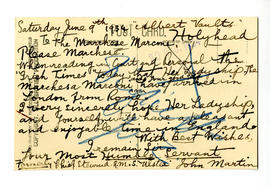 Saturday June 9th 1934 "Albert Vaults"
Holyhead
To The Marchese Marconi.
POST CARD.
Please Marchese
When reading in
Irish Times" today, Her Ladyship the
Marchesa Marconi have arrived in
London from Rome.
I very sincerely hope Her Ladyship
and yourself will have a pleasant
and enjoyable time in
With Best Wishes,
I remain Sir
Your Most Humble Servant
Formerly Chief Steward R.M.S. John Martin